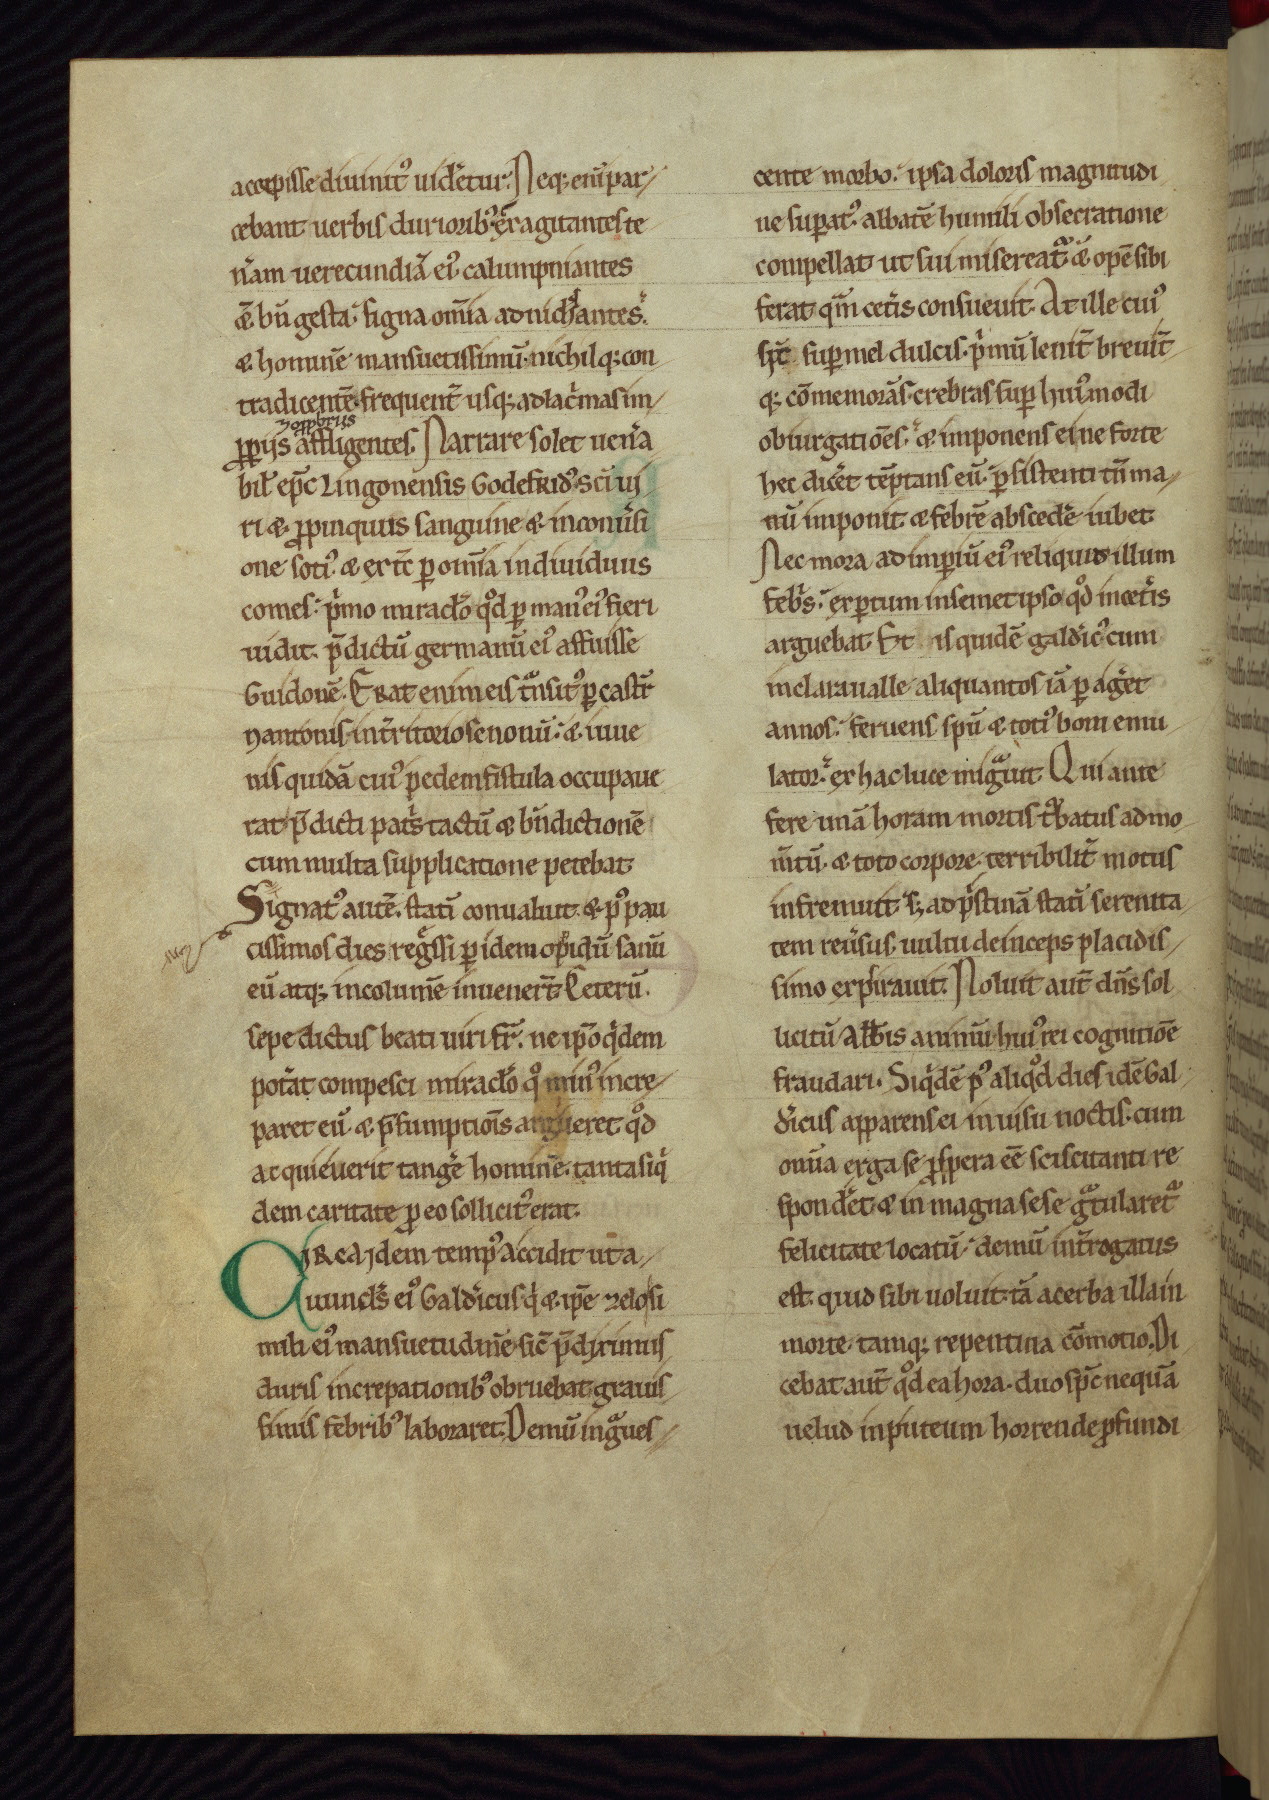 accepisse divinit᷒ uidet̃ur. Neq; enĩ par/
cebant uerbis durioribꝰ exagitantes te
ñam uerecundiã eiꝰ calumpniantes
& bñ gesta. signa om̃ia adnichilantes.
& hominẽ mansuetissimũ. nichilq; con
tradicentẽ. frequent̃ usq; ad lac̃mas im/
ꝓp̱ijs
⁊ opprobriis
affligentes. Narrare solet uen̄a
bil' ep̃c Lingonensis Godefridꝰ sc̃i ui/
ri & ꝓpinquus sanguine & in conũsi
one sotiꝰ & extc̃ ꝑ om̃ia indiuiduus
comes. p̃mo miraclo q̊d ꝑ manꝰ eiꝰ fieri
uidit. p̃dictũ germanũ eiꝰ affuisse
Guidonẽ. Erat enim eis t̃nsitꝰ ꝑ castr̃
nantonis in t̃ritorio senonũ. & iuue
nis quidã cuiꝰ pedem fistula occupaue
rat p̃dicti pat̃s tactũ & bñdictionẽ
cum multa supplicatione petebat.
Signatꝰ autẽ. statĩ conualuit. & pꝰ pau
cissimos dies reg̃ssi ꝑ idem opidũ sanũ
eũ atq; incolumẽ inuener̃t. Ceterũ.
sepe dictus beati uiri fr̃. ne ip̃o q̃dem
pot̃at compesci miraclo q̊ minꝰ incre/
paret eũ. & p̃sumptiõis argueret q̊d
acquieuerit tang̃e hominẽ. tanta siq̃
dem caritate ꝓ eo sollicitꝰ erat.
Circa idem tempꝰ accidit ut a/
uuncl̃s eiꝰ Galdricus q̃ & ip̃e zelo si
mili eiꝰ mansuetudinẽ. sic̃ p̃diximus
duris increpationibꝰ obruebat grauis/
simis febribꝰ laboraret. Demũ ing̃ues/
cente morbo. ipsa doloris magnitudi
ne suꝑatꝰ. abbatẽ humili obsecratione
compellat ut sui misereat̃ & opẽ sibi
ferat qm̃ cet̃is consueuit. At ille cuiꝰ
sp̃c suꝑ mel dulcis. p̃mũ lenit̃ breuit̃
q; cõmemorãs. crebras suꝑ huiꝰmodi
obiurgatiões. & imponens ei ne forte
hec dic̃et tẽptans eũ. ꝑsistenti tñ ma/
nũ imponit. & febrẽ absced̃e iubet.
Nec mora ad imꝑiũ eiꝰ reliquit illum
feb̃s. exꝑtum in semetipso q̊d in cet̃is
arguebat. Et is quidẽ galdricꝰ cum
in claraualle aliquantos iã ꝑag̃et
annos. feruens sp̃u & totiꝰ boni emu
lator. ex hac luce mig̃uit. Qui ante
fere unã horam mortis t̃batus ad mo
m̃tũ. & toto corpore terribilit̃ motus
infremuit. s; ad p̃stinã statĩ serenita
tem reũsus. uultu deinceps placidis/
simo expirauit. Noluit aut̃ dñs sol
licitũ Abbis animũ huiꝰ rei cognitiõe
fraudari. Siq̃dẽ pꝰ aliq̊d dies idẽ Gal
d̃icus apparens ei in uisu noctis. cum
omĩa erga se ꝓspera ee᷒ sciscitanti re
spond̃et & in magna sese g̃tularet̃
felicitate locatũ. demũ int̃rogatus
est. quid sibi uoluit. tã acerba illa in
morte. tamq; repentina cõmotio. Di
cebat aut̃ q̊d ea hora. duo sp̃c nequã
uelud in puteum horrende ꝓfundi